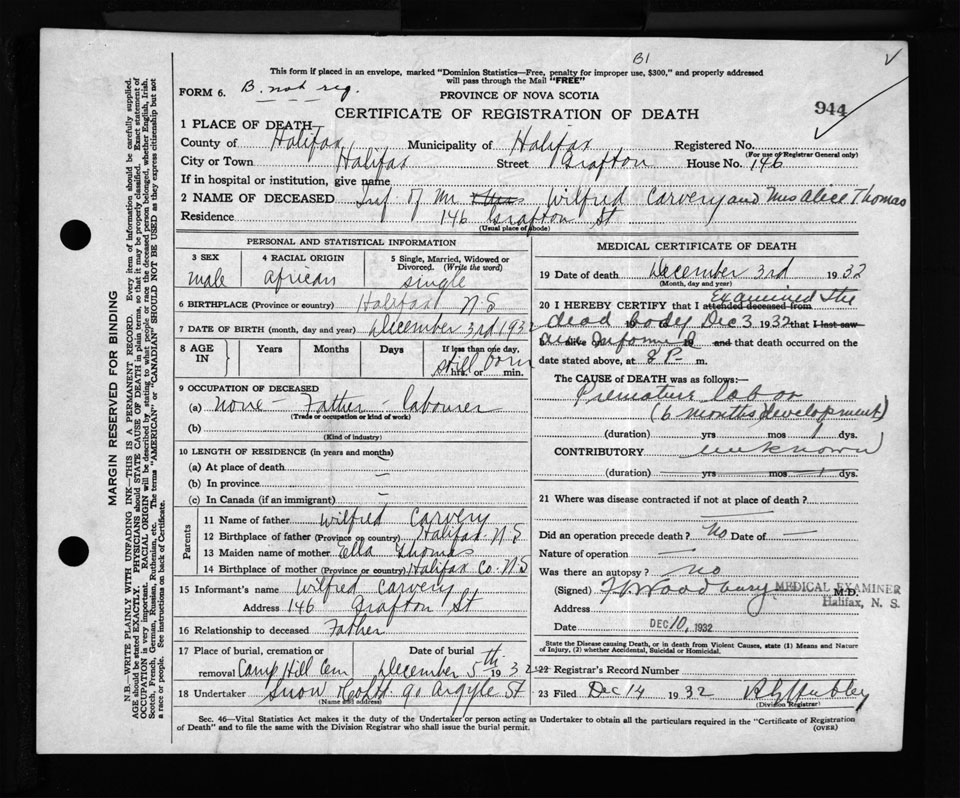 B1
This form if placed in an envelope, marked "Dominion Statistics—Free, penalty for improper use, $300," and properly addressed
will pass through the Mail "FREE"
FORM 6. B. not reg.
PROVINCE OF NOVA SCOTIA
CERTIFICATE OF REGISTRATION OF DEATH
944
1 PLACE OF DEATH—
County of Halifax Municipality of Halifax Registered No.
(For use of Registrar General only)
City or Town Halifax Street Grafton House No. 146
If in hospital or institution, give name
2 NAME OF DECEASED Inf. of Mr Wilfred Carvery and Mrs Alice Thomas
Residence 146 Grafton St
(Usual place of abode)
PERSONAL AND STATISTICAL INFORMATION
3 SEX 4 RACIAL ORIGIN 5 Single, Married, Widowed or
Divorced. (Write the word)
male african single
6 BIRTHPLACE (Province or country) Halifax N S
7 DATE OF BIRTH (month, day and year) December 3rd 1932
8 AGE IN Years Months Days If less than one day,
still born
hrs. or min.
9 OCCUPATION OF DECEASED
(a) none — Father - labourer
(Trade or occupation or kind of work)
(b)
(Kind of industry)
10 LENGTH OF RESIDENCE (in years and months)
(a) At place of death —
(b) In province —
(c) In Canada (if an immigrant) —
Parents
11 Name of father Wilfred Carvery
12 Birthplace of father (Province or country) Halifax N S
13 Maiden name of mother Ella Thomas
14 Birthplace of mother (Province or country) Halifax Co. N S
15 Informant's name Wilfred Carvery
Address 146 Grafton St
16 Relationship to deceased Father
17 Place of burial, cremation or Date of burial
removal Camp Hill Cem December 5th 1932
18 Undertaker Snow & Co Ltd 90 Argyle St
(Name and address)
MEDICAL CERTIFICATE OF DEATH
19 Date of death December 3rd 1932
(Month, day and year)
20 I HEREBY CERTIFY that I attended deceased from Examined the
dead body Dec 3 1932 that I last saw
and that death occurred on the
date stated above, at 8 P m.
The CAUSE OF DEATH was as follows:—
Premature labor
(6 months development)
(duration) yrs mos 1 dys.
CONTRIBUTORY unknown
(duration) yrs mos 1 dys.
21 Where was disease contracted if not at place of death?
Did an operation precede death? No Date of —
Nature of operation —
Was there an autopsy? no
(Signed) F V Woodbury M.D.
MEDICAL EXAMINER
Halifax, N. S.
Address
Date DEC 10, 1932
State the Disease causing Death, or in death from Violent Causes, state (1) Means and Nature
of Injury, (2) whether Accidental, Suicidal or Homicidal.
22 Registrar's Record Number
23 Filed Dec 14 1932
(Division Registrar)
Sec. 46—Vital Statistics Act makes it the duty of the Undertaker or person acting as Undertaker to obtain all the particulars required in the "Certificate of Registration
of Death" and to file the same with the Division Registrar who shall issue the burial permit.
(OVER)
MARGIN RESERVED FOR BINDING
N.B.—WRITE PLAINLY WITH UNFADING INK—THIS IS A PERMANENT RECORD. Every item of information should be carefully supplied.
AGE should be stated EXACTLY. PHYSICIANS should STATE CAUSE OF DEATH in plain terms, so that it may be properly classified. Exact statement of
OCCUPATION is very important. RACIAL ORIGIN will be described by stating to what people or race the deceased person belonged, whether English, Irish,
Scotch, French, German, Russian, Ruthenian, etc. The terms "AMERICAN" or "CANADIAN" SHOULD NOT BE USED as they express citizenship but not
a race or people. See instructions on back of Certificate.